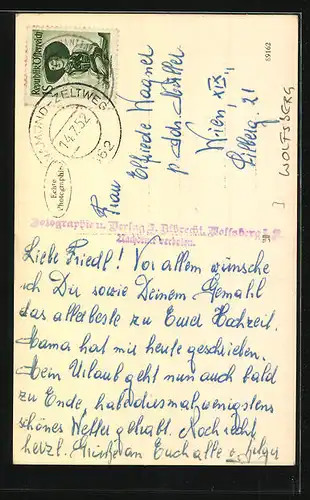 Republik Österreich
1S
GMUND-ZELTWEG
14.7.52
162
Echte
Photographie
69162
WOLFSBERG
Frau Elfriede Wagner
p. Adr. Müller
Wien, XIX.,
21
Fotographie u. Verlag J. Albrecht, Wolfsberg
Nachdruck verboten.
Liebe Friedl! Vor allem wünsche
ich Dir sowie Deinem Gemahl
das allerbeste zu Euer Hochzeit.
Mama hat mir heute geschrieben.
Mein Urlaub geht nun auch bald
zu Ende, habe diesmal wenigstens
schönes Wetter gehabt. Noch recht
herzl. Grüße an Euch alle v. Helger